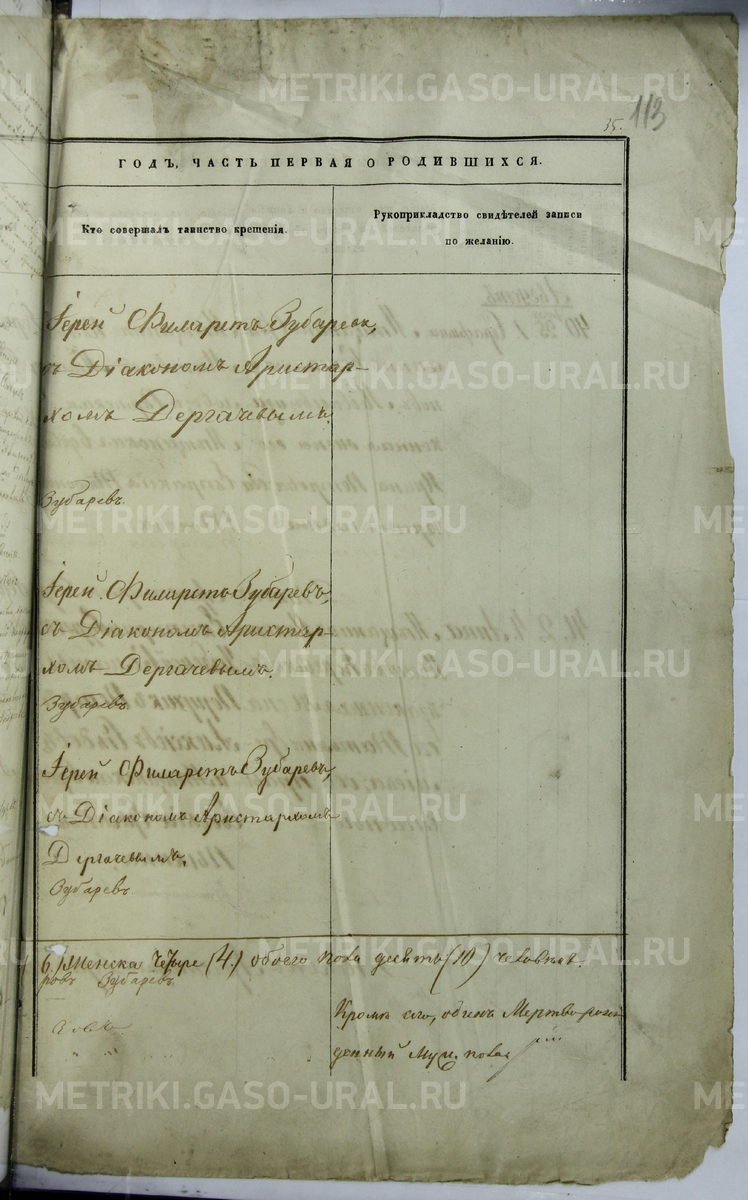 METRIKI.GASO-URAL.RU
35. 113
ГОДЪ, ЧАСТЬ ПЕРВАЯ О РОДИВШИХСЯ.
Кто совершалъ таинство крещенія.
Рукоприкладство свидѣтелей записи
по желанію.
Іерей Филаретъ Зубаревъ,
съ Діакономъ Аристар-
хомъ Дергачевымъ.
Зубаревъ.
Іерей Филаретъ Зубаревъ,
съ Діакономъ Аристар-
хомъ Дергачевымъ.
Зубаревъ
Іерей Филаретъ Зубаревъ,
съ Діакономъ Аристархомъ
Дергачевымъ.
Зубаревъ
6.) Женска четыре (4.) обоего пола десять (10) человѣкъ.
Зубаревъ.
Кромѣ сего, одинъ Мертворож-
денный муж. пола